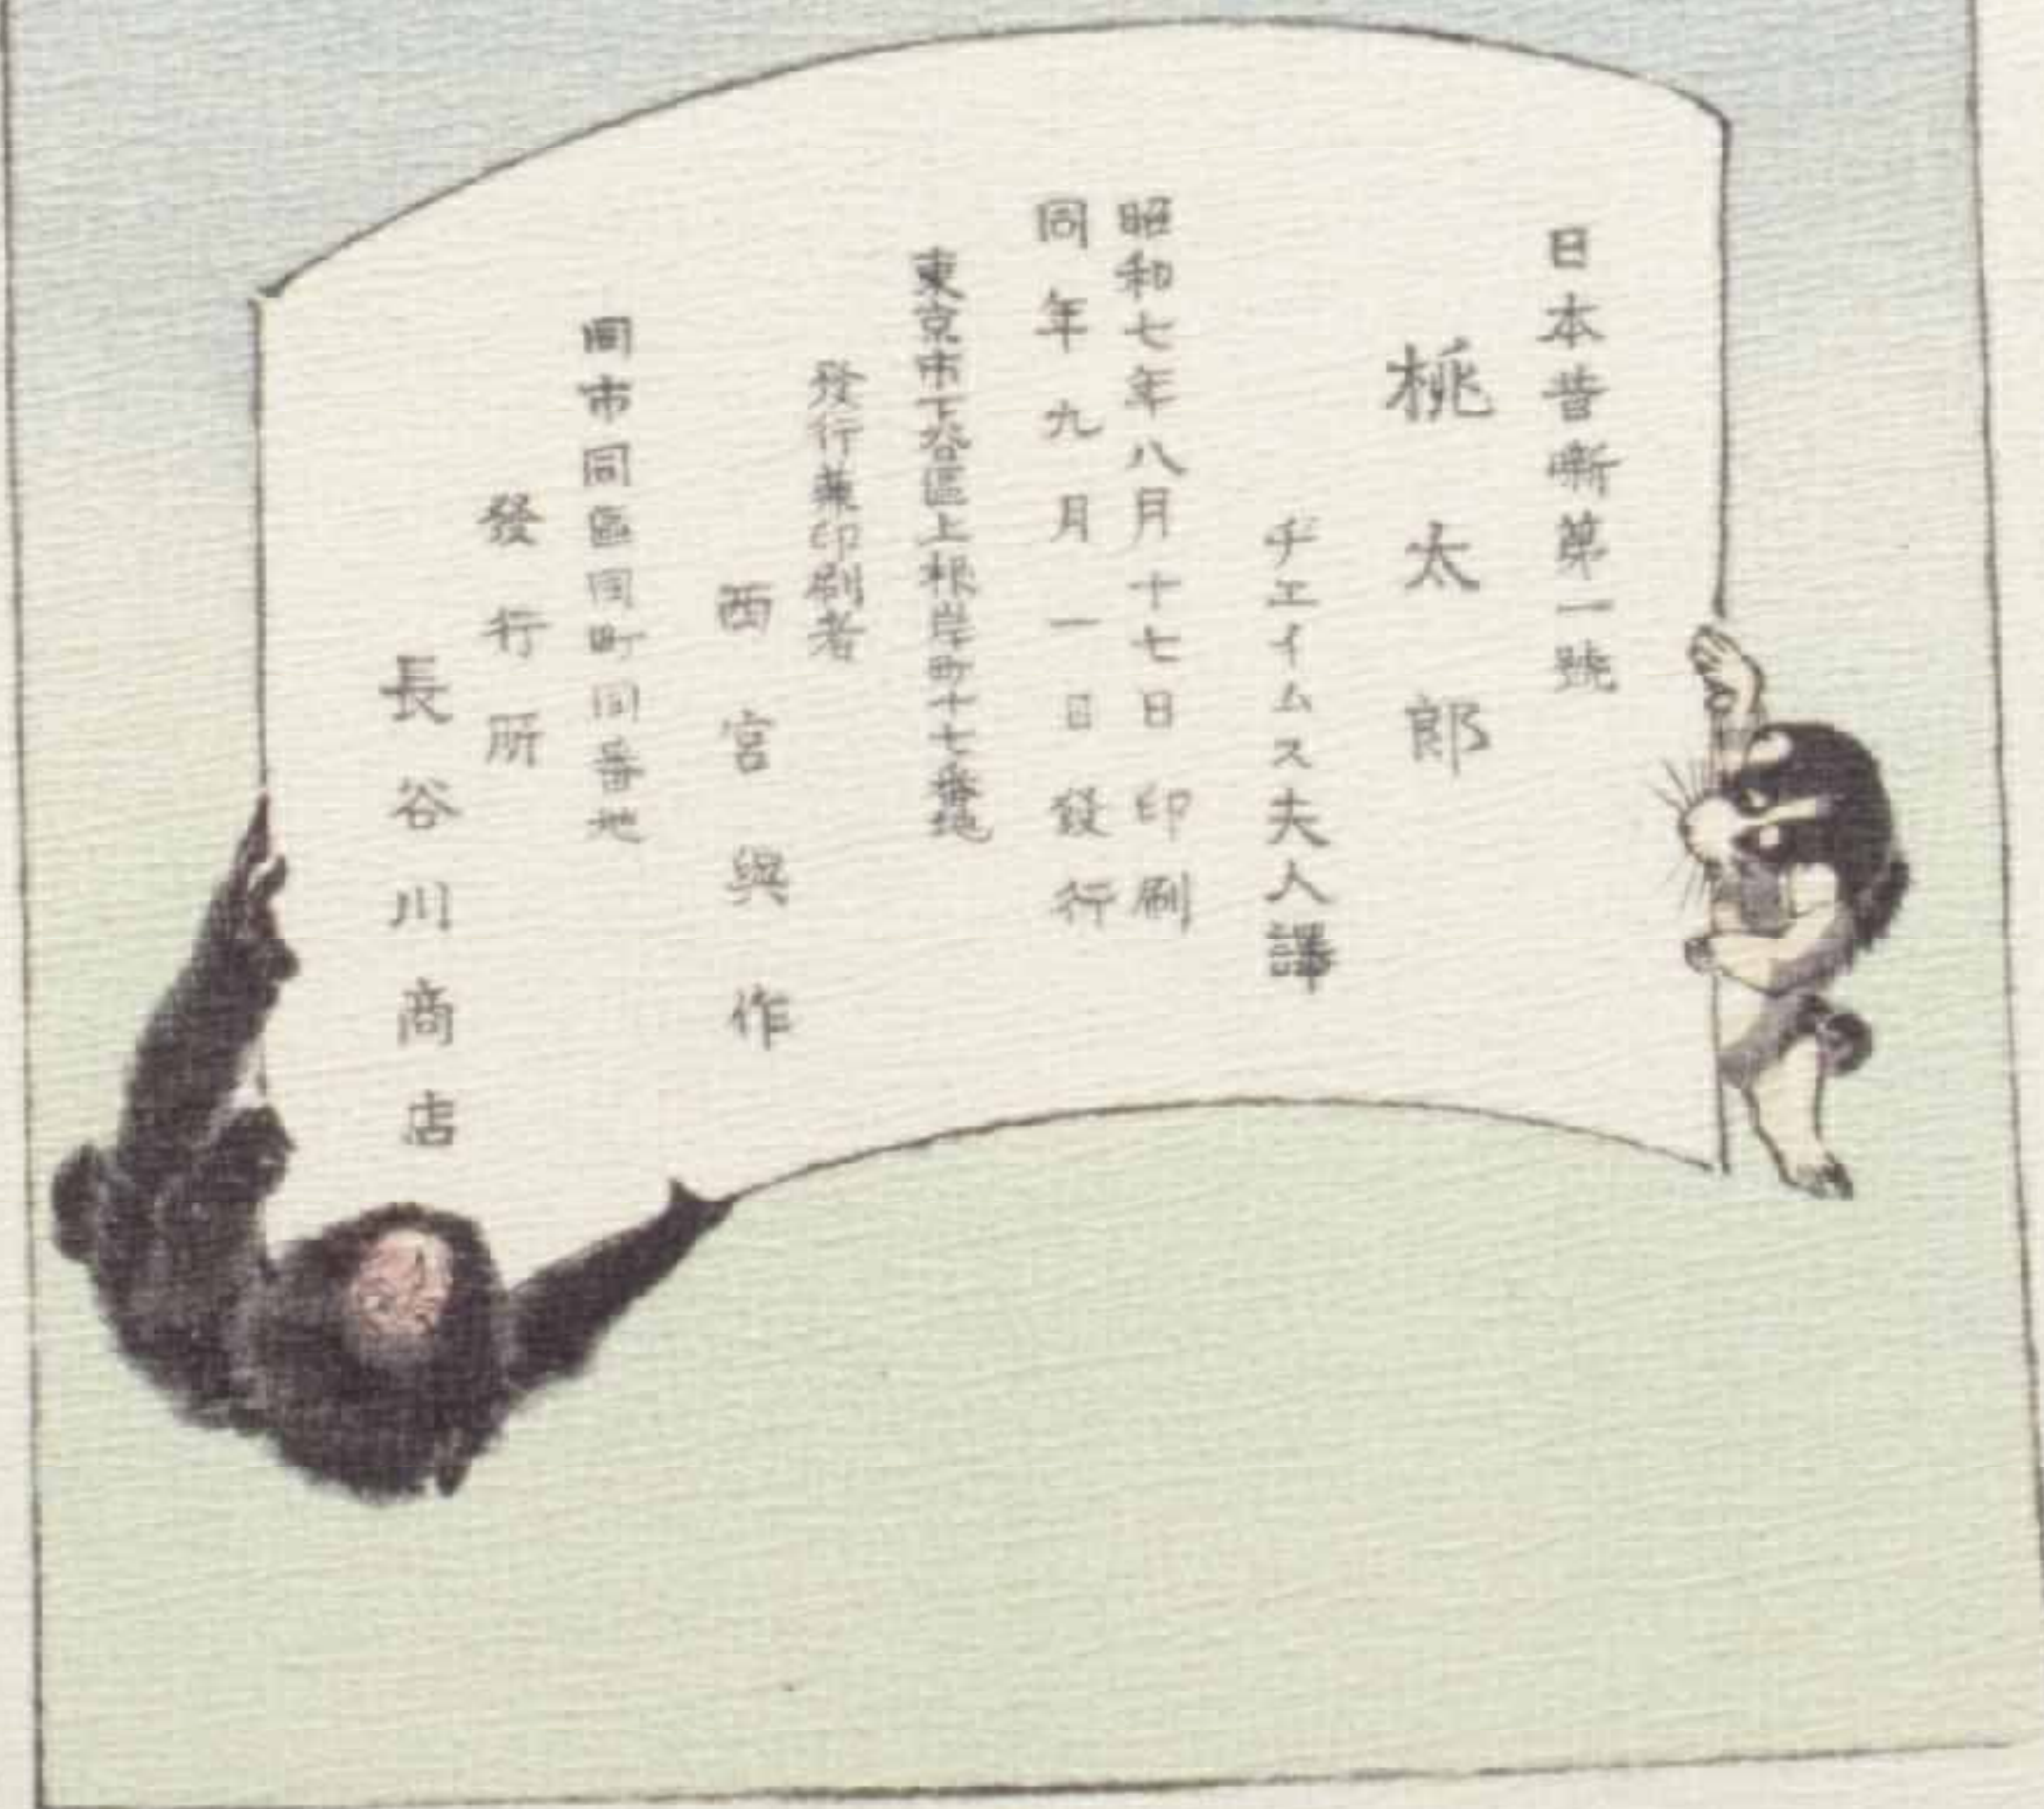 日本昔噺第一號
桃太郎
チエイムス夫人譯
昭和七年八月十七日印刷
同年九月一日發行
東京市下谷區上根岸町十七番地
發行兼印刷者
西宮與作
同市同區同町同番地
發行所
長谷川商店